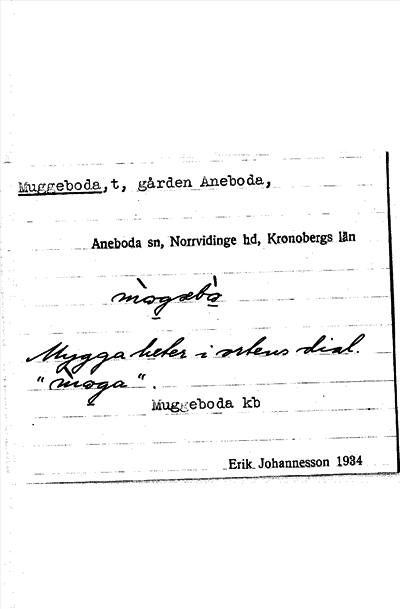 Muggeboda, t, gården Aneboda,
Aneboda sn, Norrvidinge hd, Kronobergs län
Mygga heter i ortens dial.
Muggeboda kb
Erik Johannesson 1934